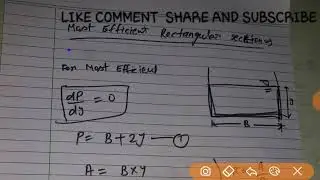 LIKE COMMENT SHARE AND SUBSCRIBE
Most Efficient Rectangular sections
For Most Efficient
dP/dy = 0
P = B + 2y — ①
A = B × y
y
B